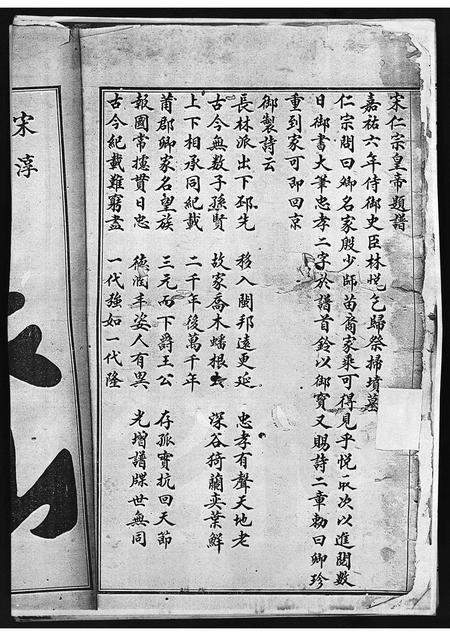 宋仁宗皇帝題譜
嘉祐六年侍御史臣林悅乞歸祭掃墳墓
仁宗問曰卿名家殷少師苗裔家乘可得見乎悅取次以進閱數
日御書大筆忠孝二字於譜首鈐以御寶又賜詩二章勅曰卿珍
重到家可即回京
御製詩云
長林派出下邳先 移入閩邦遠更延 忠孝有聲天地老
古今無數子孫賢 故家喬木蟠根 深谷猗蘭奕葉鮮
上下相承同紀載 二千年後萬千年
莆郡卿家名望族 三元而下爵王公 存孤實抗回天節
報國常攄貫日忠 德潤丰姿人有異 光增譜牒世無同
古今紀載難窮盡 一代強如一代隆
宋淳